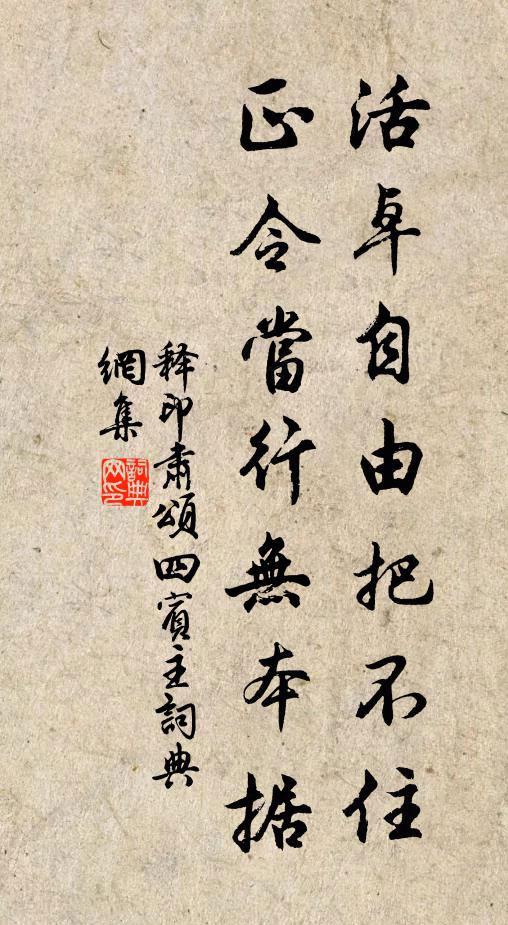 活卓自由把不住
正令當行無本据
释印肅頌四賓主詞典
網集
詞典
网印